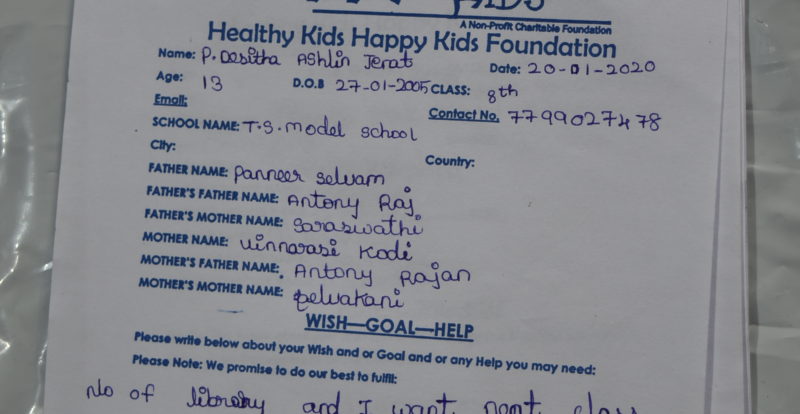 A Non-Profit Charitable Foundation
Healthy Kids Happy Kids Foundation
Name: P. Desitha Ashlin Jerat Date: 20-01-2020
Age: 13 D.O.B 27-01-2005 CLASS: 8th
Email: Contact No. 7799027478
SCHOOL NAME: T.S. model school
City: Country:
FATHER NAME: Panneer selvam
FATHER'S FATHER NAME: Antony Raj
FATHER'S MOTHER NAME: Saraswathi
MOTHER NAME: Vinnarasi Kodi
MOTHER'S FATHER NAME: Antony Rajan
MOTHER'S MOTHER NAME: Selvakani
WISH—GOAL—HELP
Please write below about your Wish and or Goal and or any Help you may need:
Please Note: We promise to do our best to fulfil:
No of library and I want next class